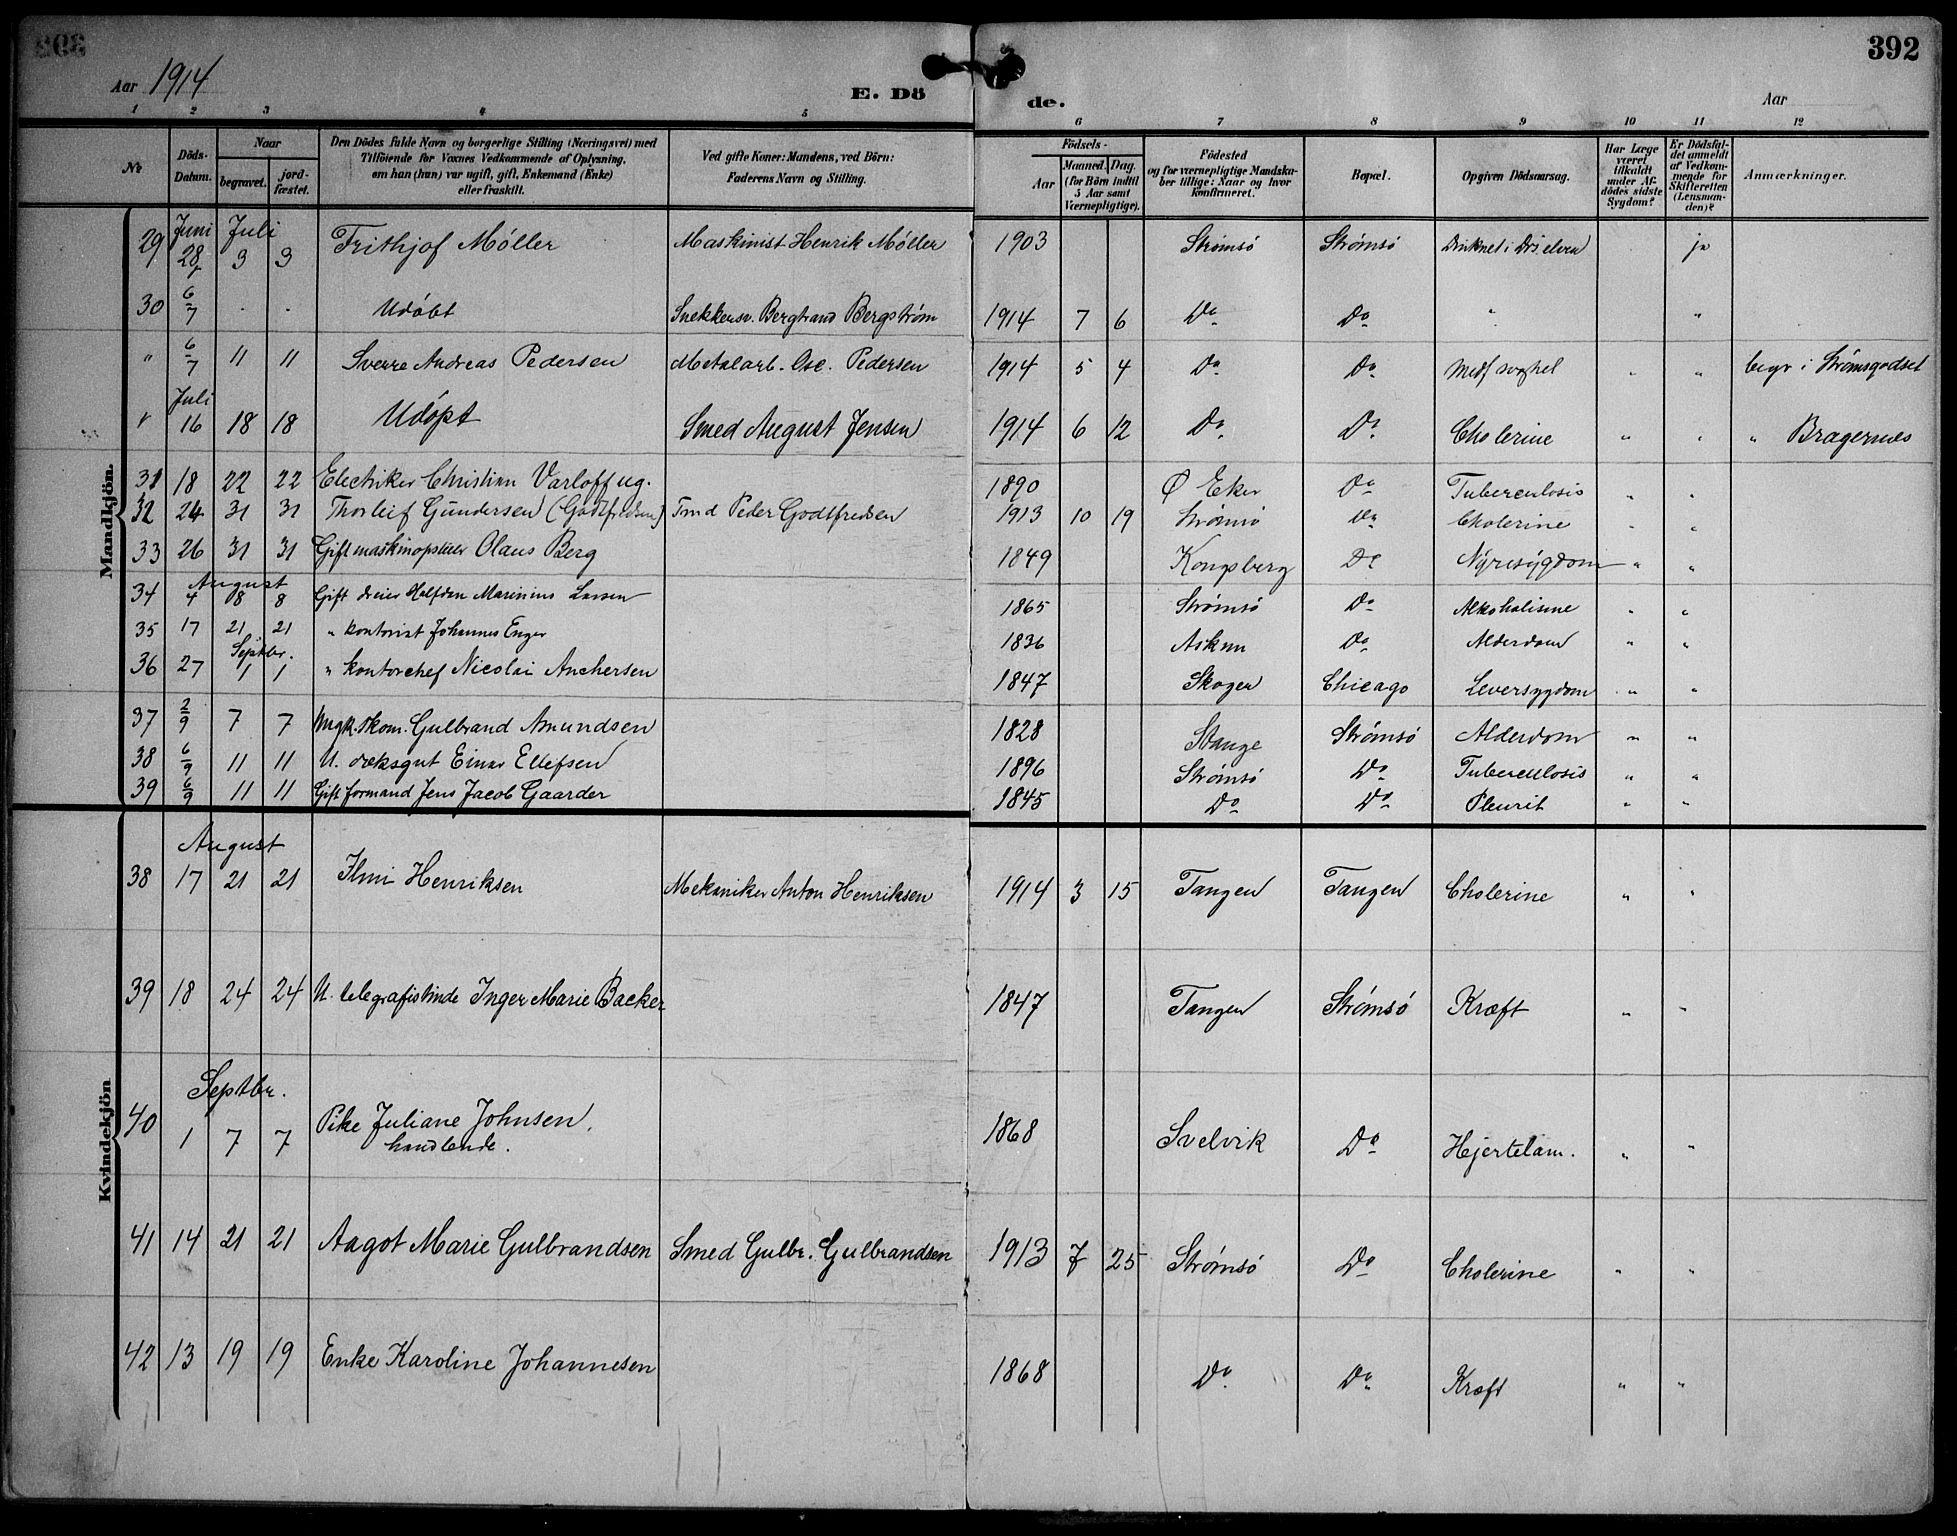 392
Aar 1914
E. Dö de.
Aar
1 2 3 4 5 6 7 8 9 10 11 12
No.
Döds-Datum.
Naar
begravet.
jord-fæstet.
Den Dödes fulde Navn og borgerlige Stilling (Næringsvei) med
Tilföiende for Voxnes Vedkommende af Oplysning,
om han (hun) var ugift, gift, Enkemand (Enke)
eller fraskilt.
Ved gifte Koner: Mandens, ved Börn:
Faderens Navn og Stilling.
Födsels-
Aar
Maaned. Dag.
(for Börn indtil
5 Aar samt
Værnepligtige).
Födested
og for værnepligtige Mandska-
ber tillige: Naar og hvor
konfirmeret.
Bopæl.
Opgiven Dödsaarsag.
Har Læge
været
tilkaldt
under Af-
dödes sidste
Sygdom?
Er Dödsfal-
det anmeldt
af Vedkom-
mende for
Skifteretten
(Lensman-
den)?
Anmærkninger.
Mandkjön.
Juni Juli
29 28 3 3 Frithjof Møller Maskinist Henrik Møller 1903 Strømsö Strømsö Druknet i Drs. elven ja
30 6/7 . . Udöbt Snekkersv. Bergtrand Bergstrøm 1914 7 6 Do Do " "
" 6/7 11 11 Sverre Andreas Pedersen Metalarb. Osc. Pedersen 1914 5 4 Do Do Medf svaghet " " begr i Strømsgodset
Juli
" 16 18 18 Udöpt Smed August Jensen 1914 6 12 Do Do Cholerine " " " Bragernes
31 18 22 22 Electriker Christian Varloff ug. 1890 Ø Eker Do Tuberculosis " "
32 24 31 31 Thorleif Gundersen (Godtfredsen) Tmd Peder Godtfredsen 1913 10 19 Strømsö Do Cholerine " "
33 26 31 31 Gift maskinopsitter Olaus Berg 1849 Kongsberg Do Nyresygdom " "
August
34 4 8 8 Gift dreier Halfdan Marinius Larsen 1865 Strømsö Do Alkoholisme " "
35 17 21 21 " kontorist Johannes Enger 1836 Askim Do Alderdom " "
Septbr.
36 27 1 1 " kontorchef Nicolai Anchersen 1847 Skoger Chicago Leversygdom " "
37 2/9 7 7 skom. Gulbrand Amundsen 1828 Stange Strømsö Alderdom " "
38 6/9 11 11 U. dæksgut Einar Ellefsen 1896 Strømsö Do Tuberculosis " "
39 6/9 11 11 Gift formand Jens Jacob Gaarder 1845 Do Do Pleurit " "
Kvindekjön
August
38 17 21 21 Henriksen Mekaniker Anton Henriksen 1914 3 15 Tangen Tangen Cholerine " "
39 18 24 24 U. telegrafistinde Inger Marie Backer 1847 Tangen Strømsö Kræft " "
Septbr.
40 1 7 7 Pike Juliane Johnsen,
handlende. 1868 Svelvik Do Hjertelam. " "
41 14 21 21 Aagot Marie Gulbrandsen Smed Gulbr. Gulbrandsen 1913 7 25 Strømsö Do Cholerine " "
42 13 19 19 Enke Karoline Johannesen 1868 Do Do Kræft " "